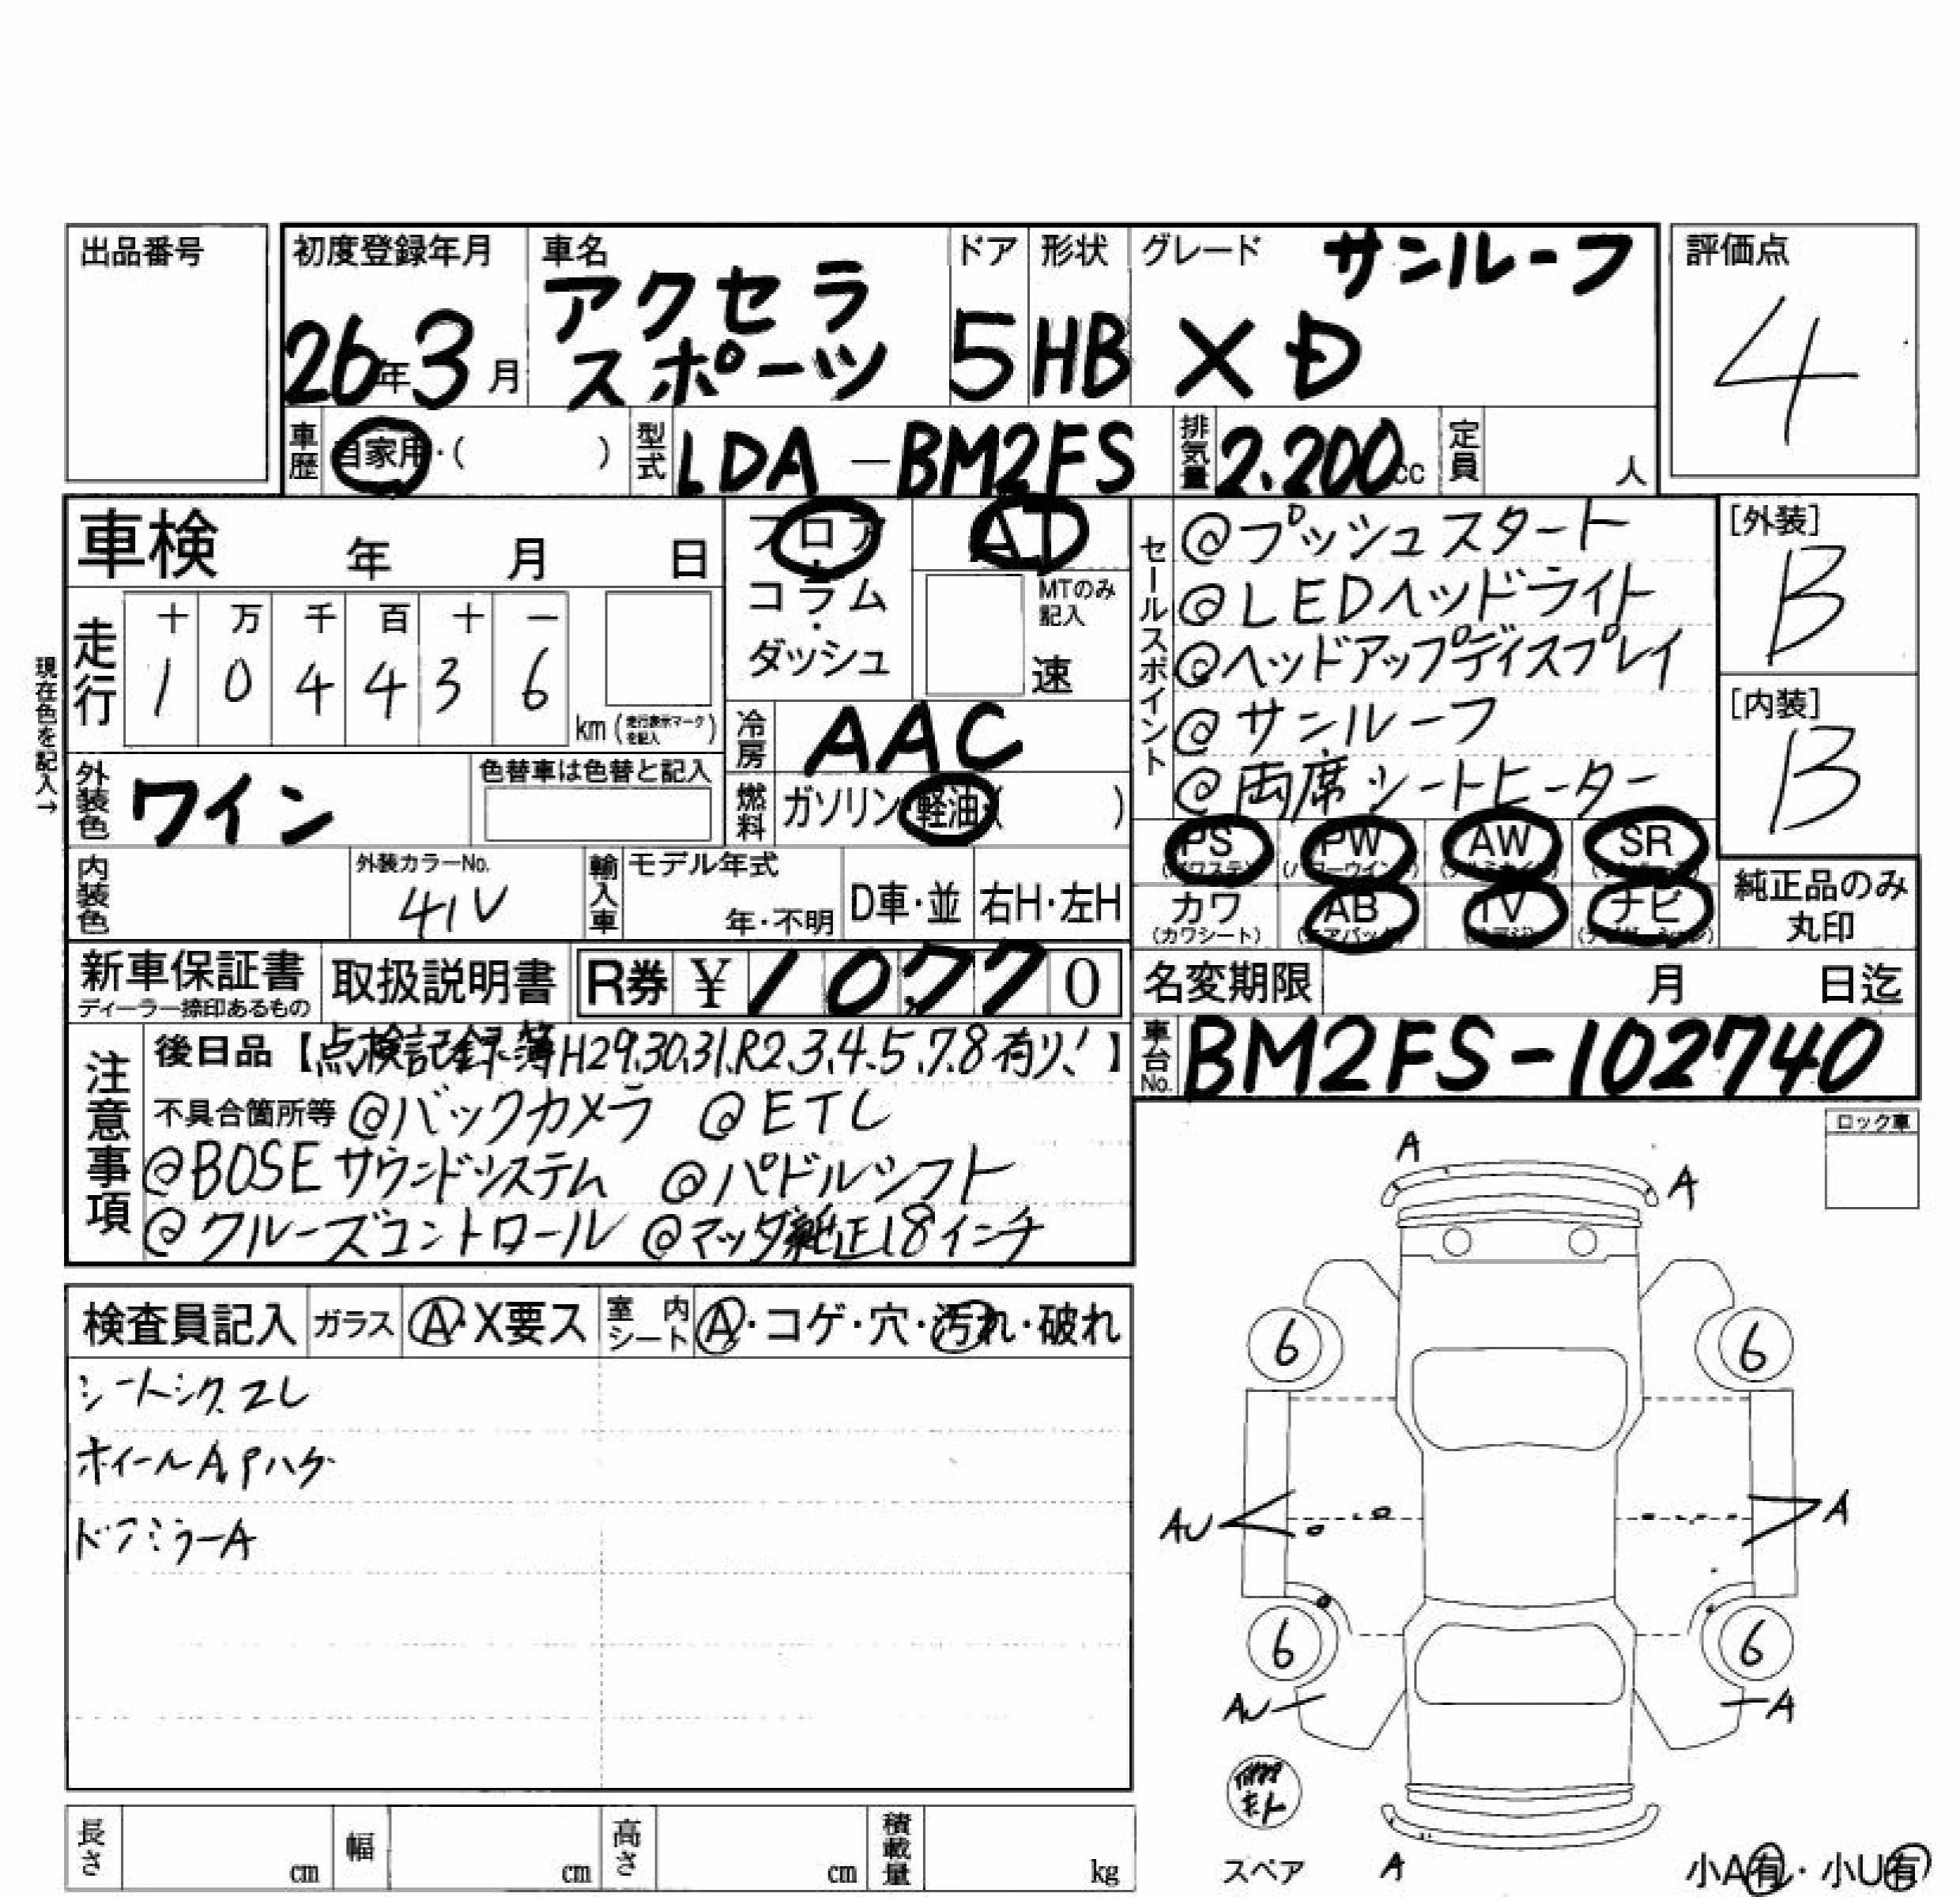 出品番号
初度登録年月 車名 ドア 形状 グレード サンルーフ 評価点
アクセラ
26年3月 スポーツ 5 HB XD 4
車歴 自家用・( ) 型式 LDA-BM2FS 排気量 2.200cc 定員 人
車検 年 月 日
フロア AT
コラム
・
ダッシュ
MTのみ
記入
速
現在色を記入→
走行 十 万 千 百 十 一
1 0 4 4 3 6
km(走行表示マークを記入)
冷房 AAC
外装色 ワイン 色替車は色替と記入
燃料 ガソリン・軽油・( )
内装色 外装カラーNo. 41V
輸入車 モデル年式 年・不明 D車・並 右H・左H
セールスポイント
@プッシュスタート
@LEDヘッドライト
@ヘッドアップディスプレイ
@サンルーフ
@両席シートヒーター
[外装]
B
[内装]
B
PS PW AW SR
カワ AB TV ナビ
(カワシート) (エアバック)
純正品のみ
丸印
新車保証書 取扱説明書 R券 ¥10,770
ディーラー捺印あるもの
名変期限 月 日迄
車台No. BM2FS-102740
注意事項
後日品【点検記録簿H29.30.31.R2.3.4.5.7.8有り!】
不具合箇所等 @バックカメラ @ETC
@BOSEサウンドシステム @パドルシフト
@クルーズコントロール @マツダ純正18インチ
検査員記入 ガラス A・X要ス 室内シート A・コゲ・穴・汚れ・破れ
シートシワ、スレ
ホイールA,Pハゲ
ドアミラーA
ロック車
A
A
6 6
AU A
6 6
AU A
スペア A
小A有・小U有
長さ cm 幅 cm 高さ cm 積載量 kg